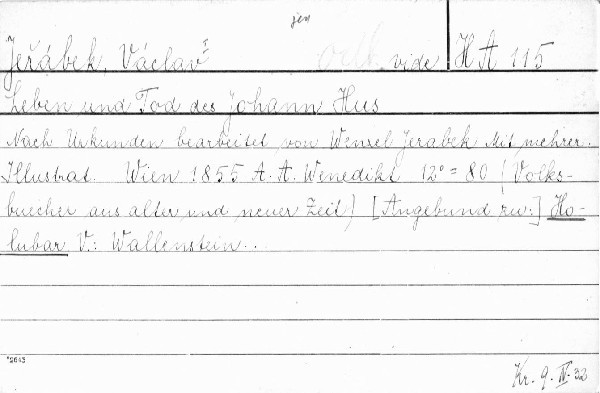 jen
Jeřábek, Václav vide HA 115
Leben und Tod des Johann Hus
Nach Urkunden bearbeitet von Wenzel Jerabek Mit mehrer.
Illustrat. Wien 1855 A. A. Wenedikt 12° = 80 (Volks-
buecher aus alter und neuer Zeit) [Angebund zw:] Ho-
lubar V.: Wallenstein..
*2643
Kr. 9. IV. 32